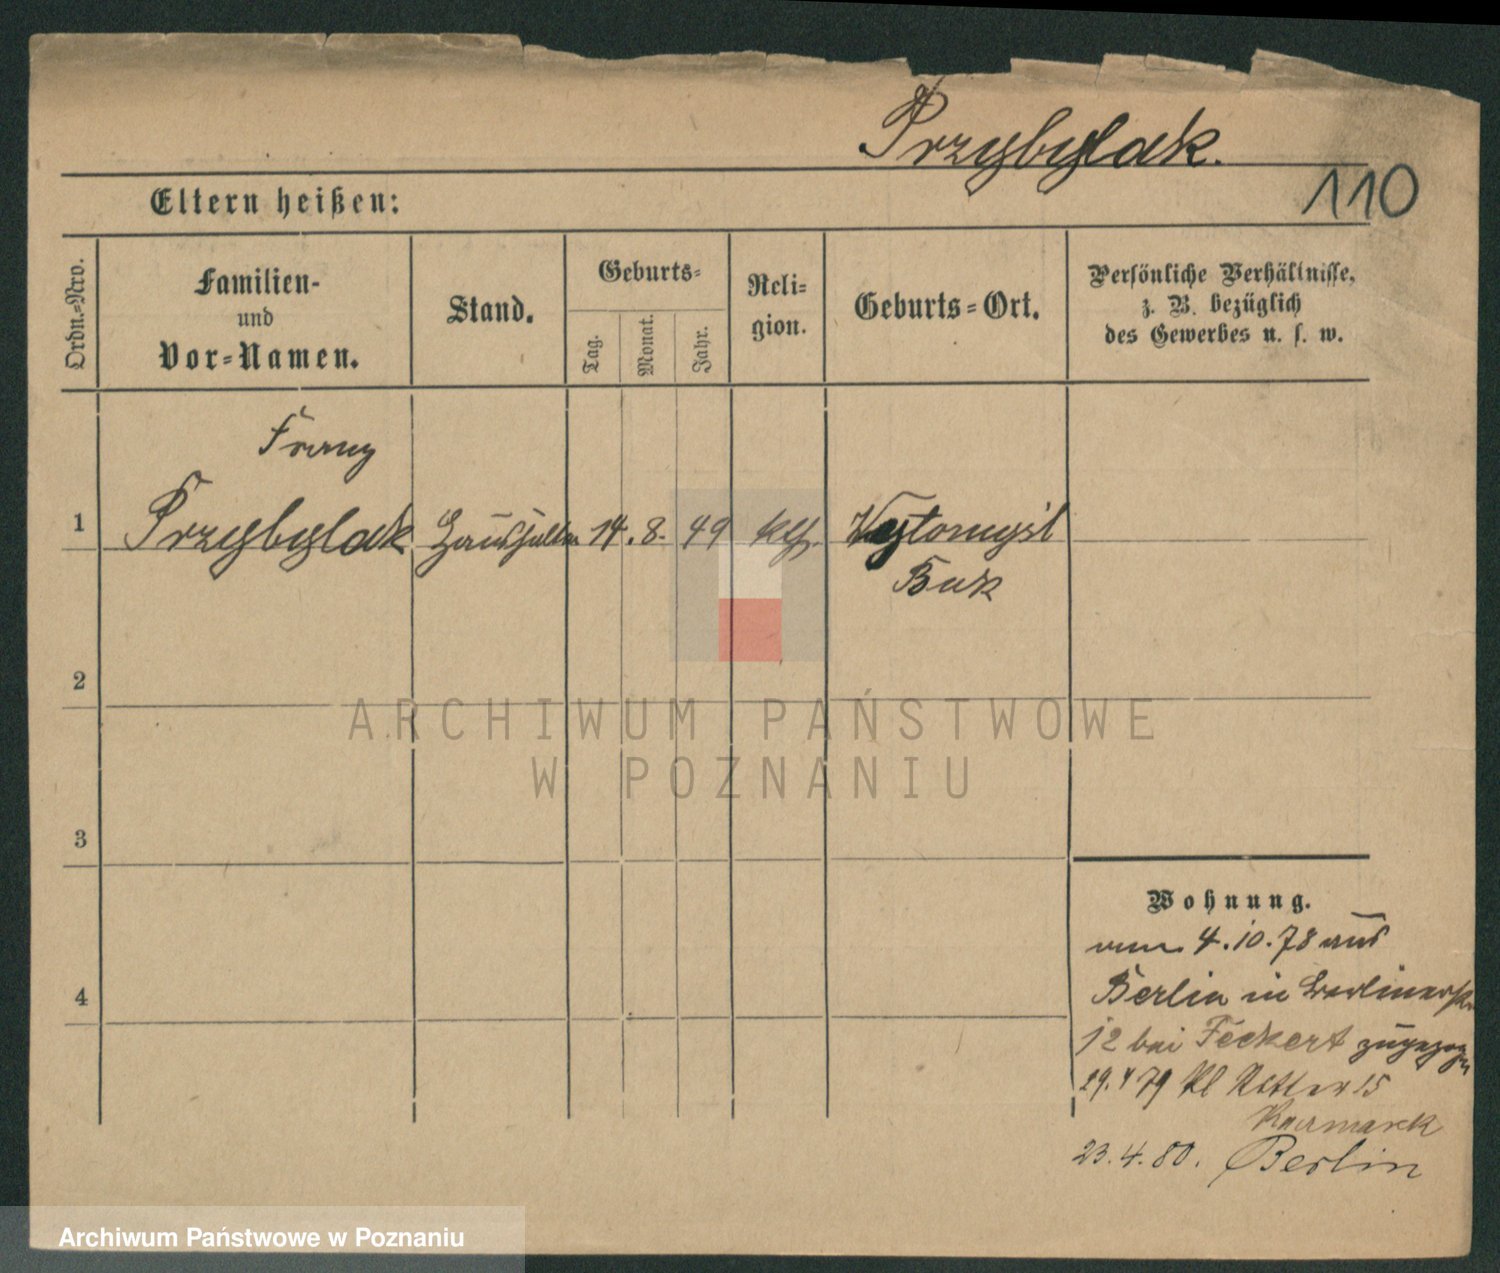 Przybylak.
110
Eltern heißen:
Ordn.=Nro.
Familien-
und
Vor=Namen.
Stand.
Geburts=
Tag.
Monat.
Jahr.
Reli=
gion.
Geburts=Ort.
Persönliche Verhältnisse,
z. B. bezüglich
des Gewerbes u. s. w.
Franz
1 Przybylak Haushälter 14. 8. 49 kth. Wytomysl
Buk
2
3
4
ARCHIWUM PAŃSTWOWE
W POZNANIU
Wohnung.
4.10.78 aus
Berlin in Berlinerstr
12 bei Feckert zugezogen
29.4 79 Kl Ritter 15
Kaczmarek
23.4.80. Berlin
Archiwum Państwowe w Poznaniu